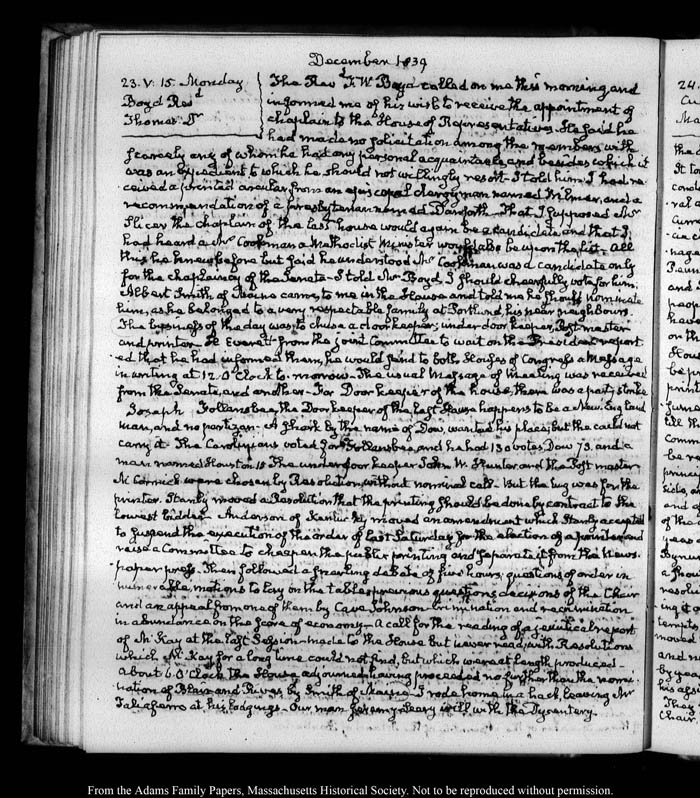 December 1839
23. V: 15. Monday
Boyd Revd
Thomas Dr
The Revd T. W. Boyd called on me this morning and
informed me of his wish to receive the appointment of
chaplain to the House of Representatives. He said he
had made no solicitation among the members with
scarcely any of whom he had any personal acquaintance, and besides which it
was an expedient to which he should not willingly resort. I told him I had re-
ceived a printed circular from an episcopal clergyman named and a
recommendation of a presbyterian named Danforth. That I supposed Mr
Slicer the chaplain of the last house would again be a candidate and that I
had heard a Mr Cookman a Methodist Minister would also be upon the list. All
this he knew before but said he understood Mr Cookman was a candidate only
for the chaplaincy of the Senate. I told Mr Boyd I should cheerfully vote for him.
Albert Smith of Maine came to me in the House and told me he should nominate
him, as he belonged to a very respectable family at Portland, his near neighbours.
The business of the day was to chuse a doorkeeper, under doorkeeper, Post master
and printer. H. Everett from the joint Committee to wait on the President report-
ed that he had informed them, he would send to both Houses of Congress a Message
in writing at 12. O'Clock to-morrow. The usual Message of Meeting was received
from the Senate, and another. For Door keeper of the house, there was a party strike
Joseph Follansbee, the Door keeper of the last House happens to be a New-England
man, and no partizan. A shark by the name of Dow, wanted his place; but he could not
carry it. The Carolinians voted for Follansbee, and he had 130 votes, Dow 73. and a
man named Houston 18 The under doorkeeper John W. Hunter and the Post master
McCormick were chosen by Resolution, without nominal call. But the tug was for the
printer. Stanly moved a Resolution that the printing should be done by contract to the
lowest bidder. Anderson of Kentucky moved an amendment which Stanly accepted
to suspend the execution of the order of last Saturday for the election of a printer, and
raise a Committee to cheapen the public printing and separate it from the News-
paper press. Then followed a debate of five hours, questions of order in-
numerable, motions to lay on the table, previous questions, decisions of the Chair
and an appeal from one of them by Cave Johnson. Crimination and recrimination
in abundance on the score of economy. A call for the reading of a report
of McKay at the last Session, made to the House but never read, with Resolutions
which McKay for a long time could not find, but which were at length produced.
About 6. O'Clock the House adjourned having proceeded no further than the nomi-
nation of Blair and Rives by Smith of Maine. I rode home in a hack, leaving Mr
Taliaferro at his lodgings. Our man Jeremy Leary is ill with the Dysentery.
From the Adams Family Papers, Massachusetts Historical Society. Not to be reproduced without permission.